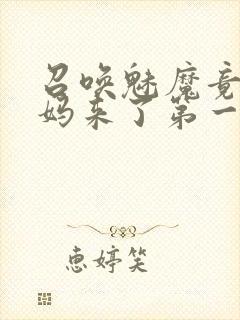 召唤魅魔竟
妈来了第一
惠婷笑